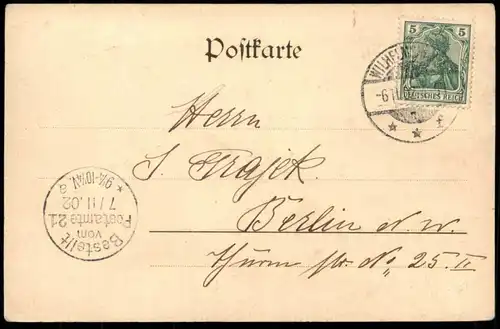 Postkarte
5 5
DEUTSCHES REICH
WILHELMS
-6.11
Herrn
S. Frajek.
Berlin N. W.
Thurm str. No. 25. II
Bestellt
vom
Postamte 21
7/11.02
9¼-10¼V. a